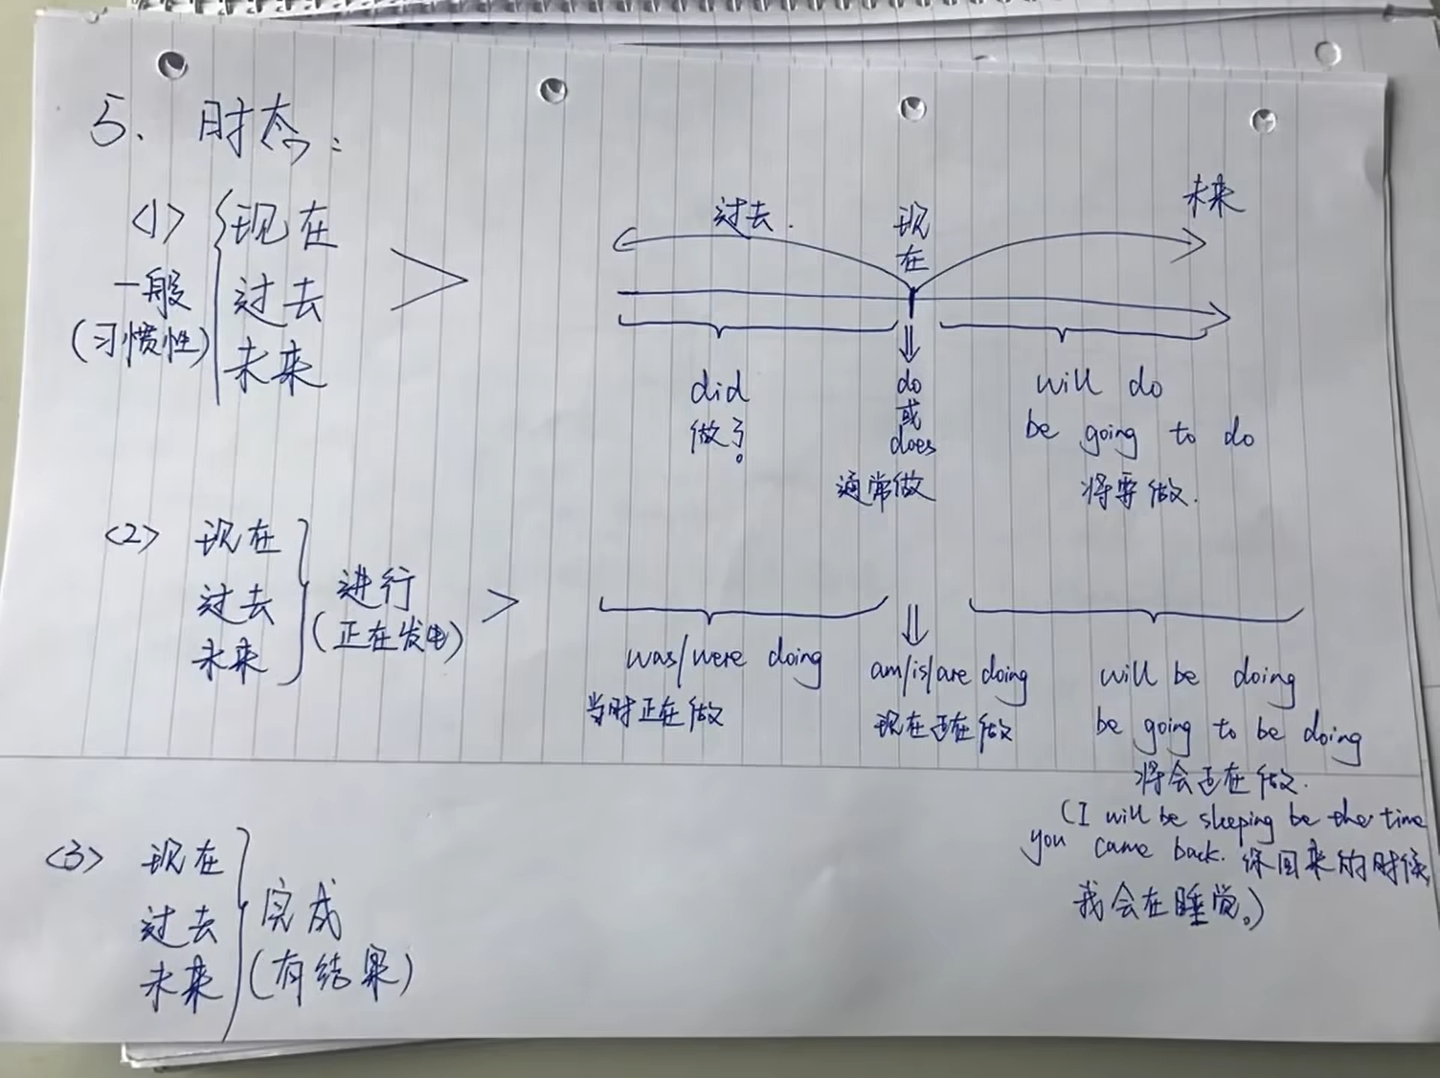 5、时态：
<1>
一般
(习惯性)
现在
过去
未来
过去.
现
在
未来
did
做了。
do
或
does
通常做
will do
be going to do
将要做.
<2>
现在
过去
未来
进行
(正在发电)
was/were doing
当时正在做
am/is/are doing
现在正在做
will be doing
be going to be doing
将会正在做.
(I will be sleeping be the time
you came back. 你回来的时候,
我会在睡觉。)
<3>
现在
过去
未来
完成
(有结果)